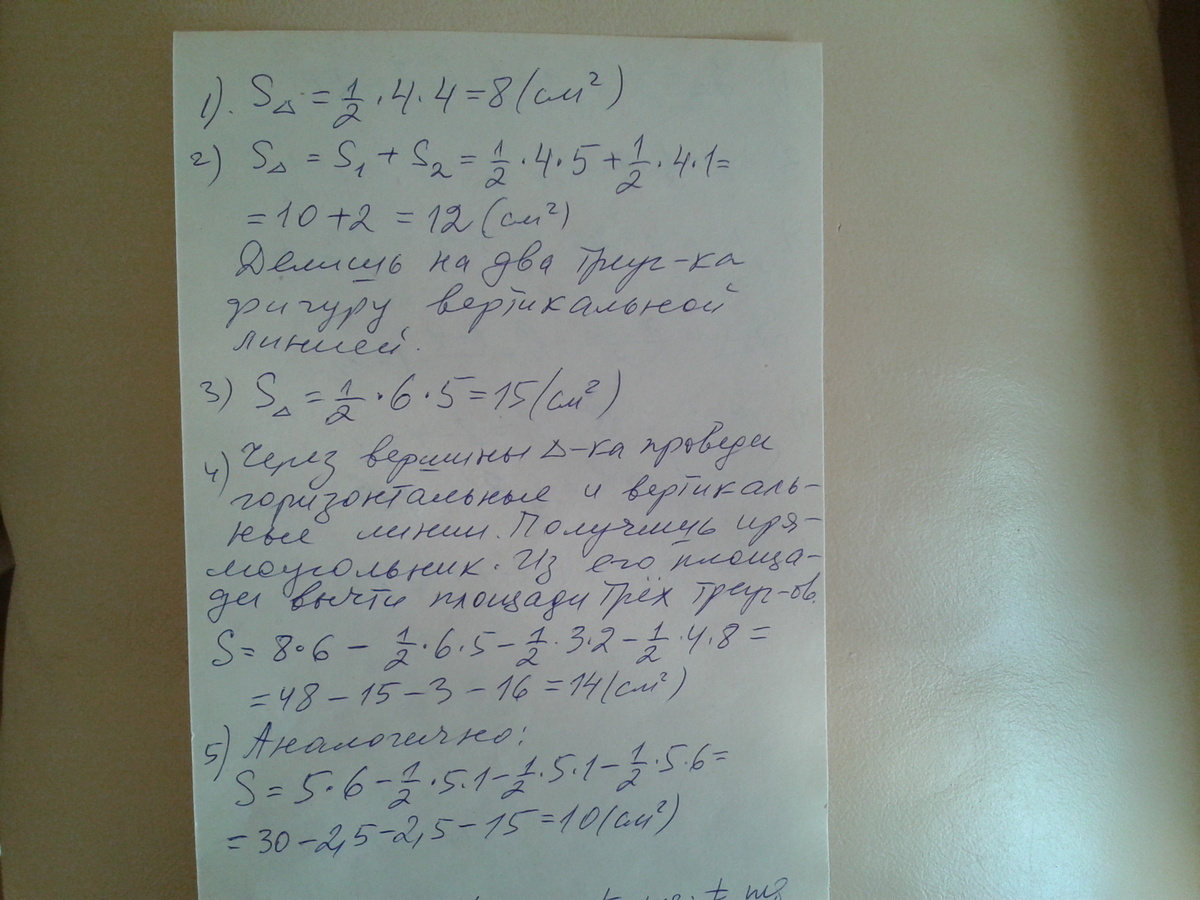 1). S△ = 1/2 · 4 · 4 = 8 (см²)
2) S△ = S₁ + S₂ = 1/2 · 4 · 5 + 1/2 · 4 · 1 =
= 10 + 2 = 12 (см²)
Делишь на два треуг-ка
фигуру вертикальной
линией.
3) S△ = 1/2 · 6 · 5 = 15 (см²)
4) Через вершины △-ка проведи
горизонтальные и вертикаль-
ные линии. Получишь пря-
моугольник. Из его площа-
ди вычти площади трёх треуг-ов.
S = 8 · 6 - 1/2 · 6 · 5 - 1/2 · 3 · 2 - 1/2 · 4 · 8 =
= 48 - 15 - 3 - 16 = 14 (см²)
5) Аналогично:
S = 5 · 6 - 1/2 · 5 · 1 - 1/2 · 5 · 1 - 1/2 · 5 · 6 =
= 30 - 2,5 - 2,5 - 15 = 10 (см²)